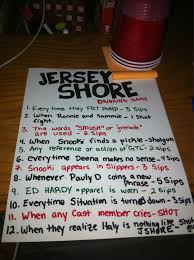 JERSEY
SHORE
DRINKING GAME
1. Every time they FIST PUMP - 3 Sips
2. When Ronnie and Sammie - 1 Shot
fight.
3. The words "Smush" or grenade
are used - 2 Sips
4. When Snooki finds a pickle - Shotgun
5. Any reference or action of GTL - 2 Sips
6. everytime Deena makes no sense - 4 Sips
7. Snooki appears in Slippers - 3 Sips
8. Whenever Pauly D coins a new
phrase - 5 Sips
9. ED HARDY apparel is worn - 2 Sips
10. Everytime Situation is turned down - 3 sips
11. When any Cast member cries - SHOT
12. When they realize Italy is nothing like
JSHORE -